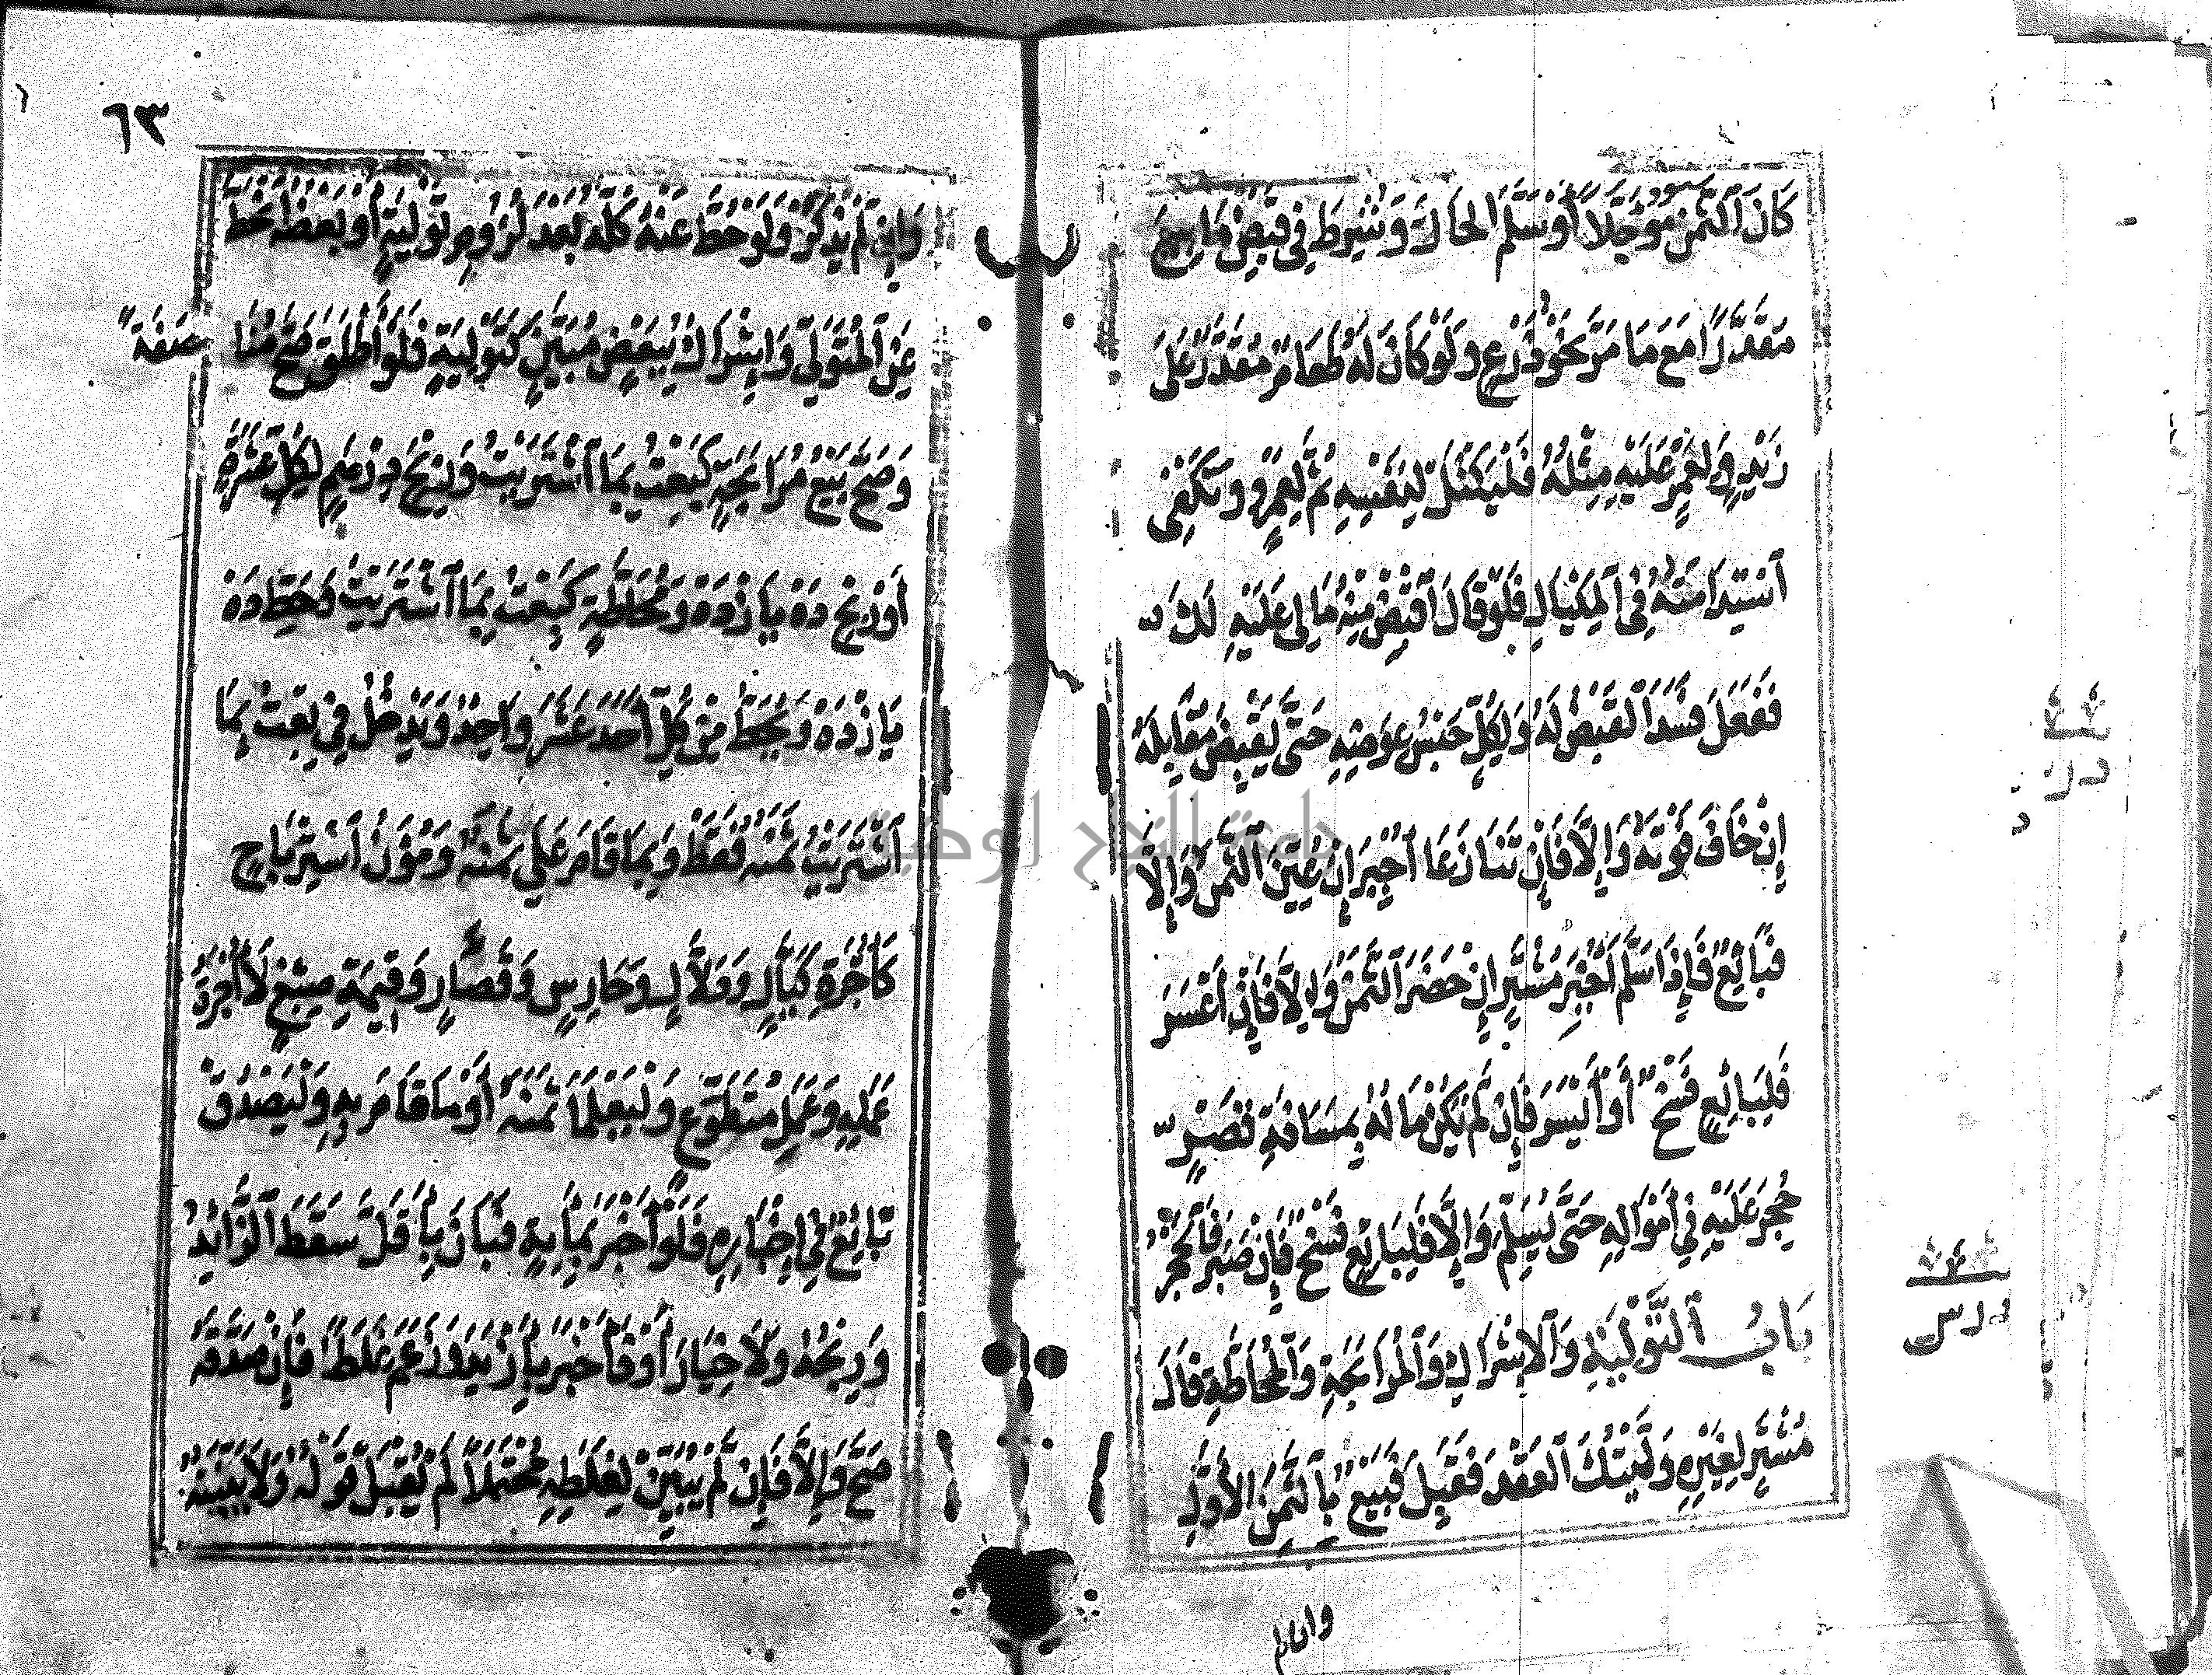 كَانَ ٱلثَّمَنُ مُؤَجَّلًا أَوْ سَلَّمَ ٱلحَالَّ وَشُرِطَ فِي قَبْضِ مَا بِيعَ
مُقَدَّرًا مَعَ مَا مَرَّ نَحْوُ ذَرْعٍ وَلَوْ كَانَ لَهُ طَعَامٌ مُقَدَّرٌ عَلَى
زَيْدٍ وَلِعَمْرٍو عَلَيْهِ مِثْلُهُ فَلْيَكْتَلْ لِنَفْسِهِ ثُمَّ لِعَمْرٍو وَيَكْفِي
ٱسْتِدَامَتُهُ فِي ٱلْمِكْيَالِ فَلَوْ قَالَ ٱقْبِضْ مِنْهُ مَا لِي عَلَيْهِ لَكَ
فَفَعَلَ فَسَدَ ٱلْقَبْضُ لَهُ وَلِكُلٍّ حَبْسُ عِوَضِهِ حَتَّى يَقْبِضَ مُقَابِلَهُ
إِنْ خَافَ فَوْتَهُ وَإِلَّا فَإِنْ تَنَازَعَا أُجْبِرَا إِنْ عُيِّنَ ٱلثَّمَنُ وَإِلَّا
فَبَائِعٌ فَإِذَا سَلَّمَ أُجْبِرَ مُشْتَرٍ إِنْ حَضَرَ ٱلثَّمَنُ وَإِلَّا فَإِنْ أَعْسَرَ
فَلِبَائِعٍ فَسْخٌ أَوْ أَيْسَرَ فَإِنْ لَمْ يَكُنْ مَالُهُ بِمَسَافَةِ قَصْرٍ
حُجِرَ عَلَيْهِ فِي أَمْوَالِهِ حَتَّى يُسَلِّمَ وَإِلَّا فَلِبَائِعٍ فَسْخٌ فَإِنْ صَبَرَ فَٱلْحَجْرُ
بَابُ ٱلتَّوْلِيَةِ وَٱلْإِشْرَاكِ وَٱلْمُرَابَحَةِ وَٱلْمُحَاطَّةِ قَالَ
مُشْتَرٍ لِغَيْرِهِ وَلَّيْتُكَ ٱلعَقْدَ فَقَبِلَ فَبَيْعٌ بِٱلثَّمَنِ ٱلْأَوَّلِ
وان لم
درس
٦٣
وَإِنْ لَمْ يُذْكَرْ وَلَوْ حُطَّ عَنْهُ كُلُّهُ بَعْدَ لُزُومِ تَوْلِيَةٍ أَوْ بَعْضُهُ حُطَّ
عَنِ ٱلْمُتَوَلِّي وَإِشْرَاكٌ بِبَعْضٍ مُبَيَّنٍ كَتَوْلِيَةٍ فَلَوْ أَطْلَقَ صَحَّ مُنَاصَفَةً
وَصَحَّ بَيْعُ مُرَابَحَةٍ كَبِعْتُ بِمَا ٱشْتَرَيْتُ وَرِبْحِ دِرْهَمٍ لِكُلِّ عَشَرَةٍ
أَوْ رِبْحِ دَهْ يَازْدَهْ وَمُحَاطَّةٍ كَبِعْتُ بِمَا ٱشْتَرَيْتُ وَحَطِّ دَهْ
يَازْدَهْ وَيُحَطُّ مِنْ كُلِّ أَحَدَ عَشَرَ وَاحِدٌ وَيَدْخُلُ فِي بِعْتُ بِمَا
ٱشْتَرَيْتُ ثَمَنُهُ فَقَطْ وَبِمَا قَامَ عَلَيَّ ثَمَنُهُ وَمُؤَنُ ٱسْتِرْبَاحٍ
كَأُجْرَةِ كَيَّالٍ وَدَلَّالٍ وَحَارِسٍ وَقَصَّارٍ وَقِيمَةِ صِبْغٍ لَا أُجْرَةُ
عَمَلِهِ وَعَمَلِ مُتَطَوِّعٍ وَلْيَعْلَمَا ثَمَنَهُ أَوْ مَا قَامَ بِهِ وَلْيَصْدُقْ
بَائِعٌ فِي إِخْبَارِهِ فَلَوْ أَخْبَرَ بِمِائَةٍ فَبَانَ بِأَقَلَّ سَقَطَ ٱلزَّائِدُ
وَرِبْحُهُ وَلَا خِيَارَ أَوْ فَأَخْبَرَ بِأَزْيَدَ وَزَعَمَ غَلَطًا فَإِنْ صَدَّقَهُ
صَحَّ وَإِلَّا فَإِنْ لَمْ يُبَيِّنْ لِغَلَطِهِ مُحْتَمَلًا لَمْ يُقْبَلْ قَوْلُهُ وَلَا بَيِّنَتُهُ